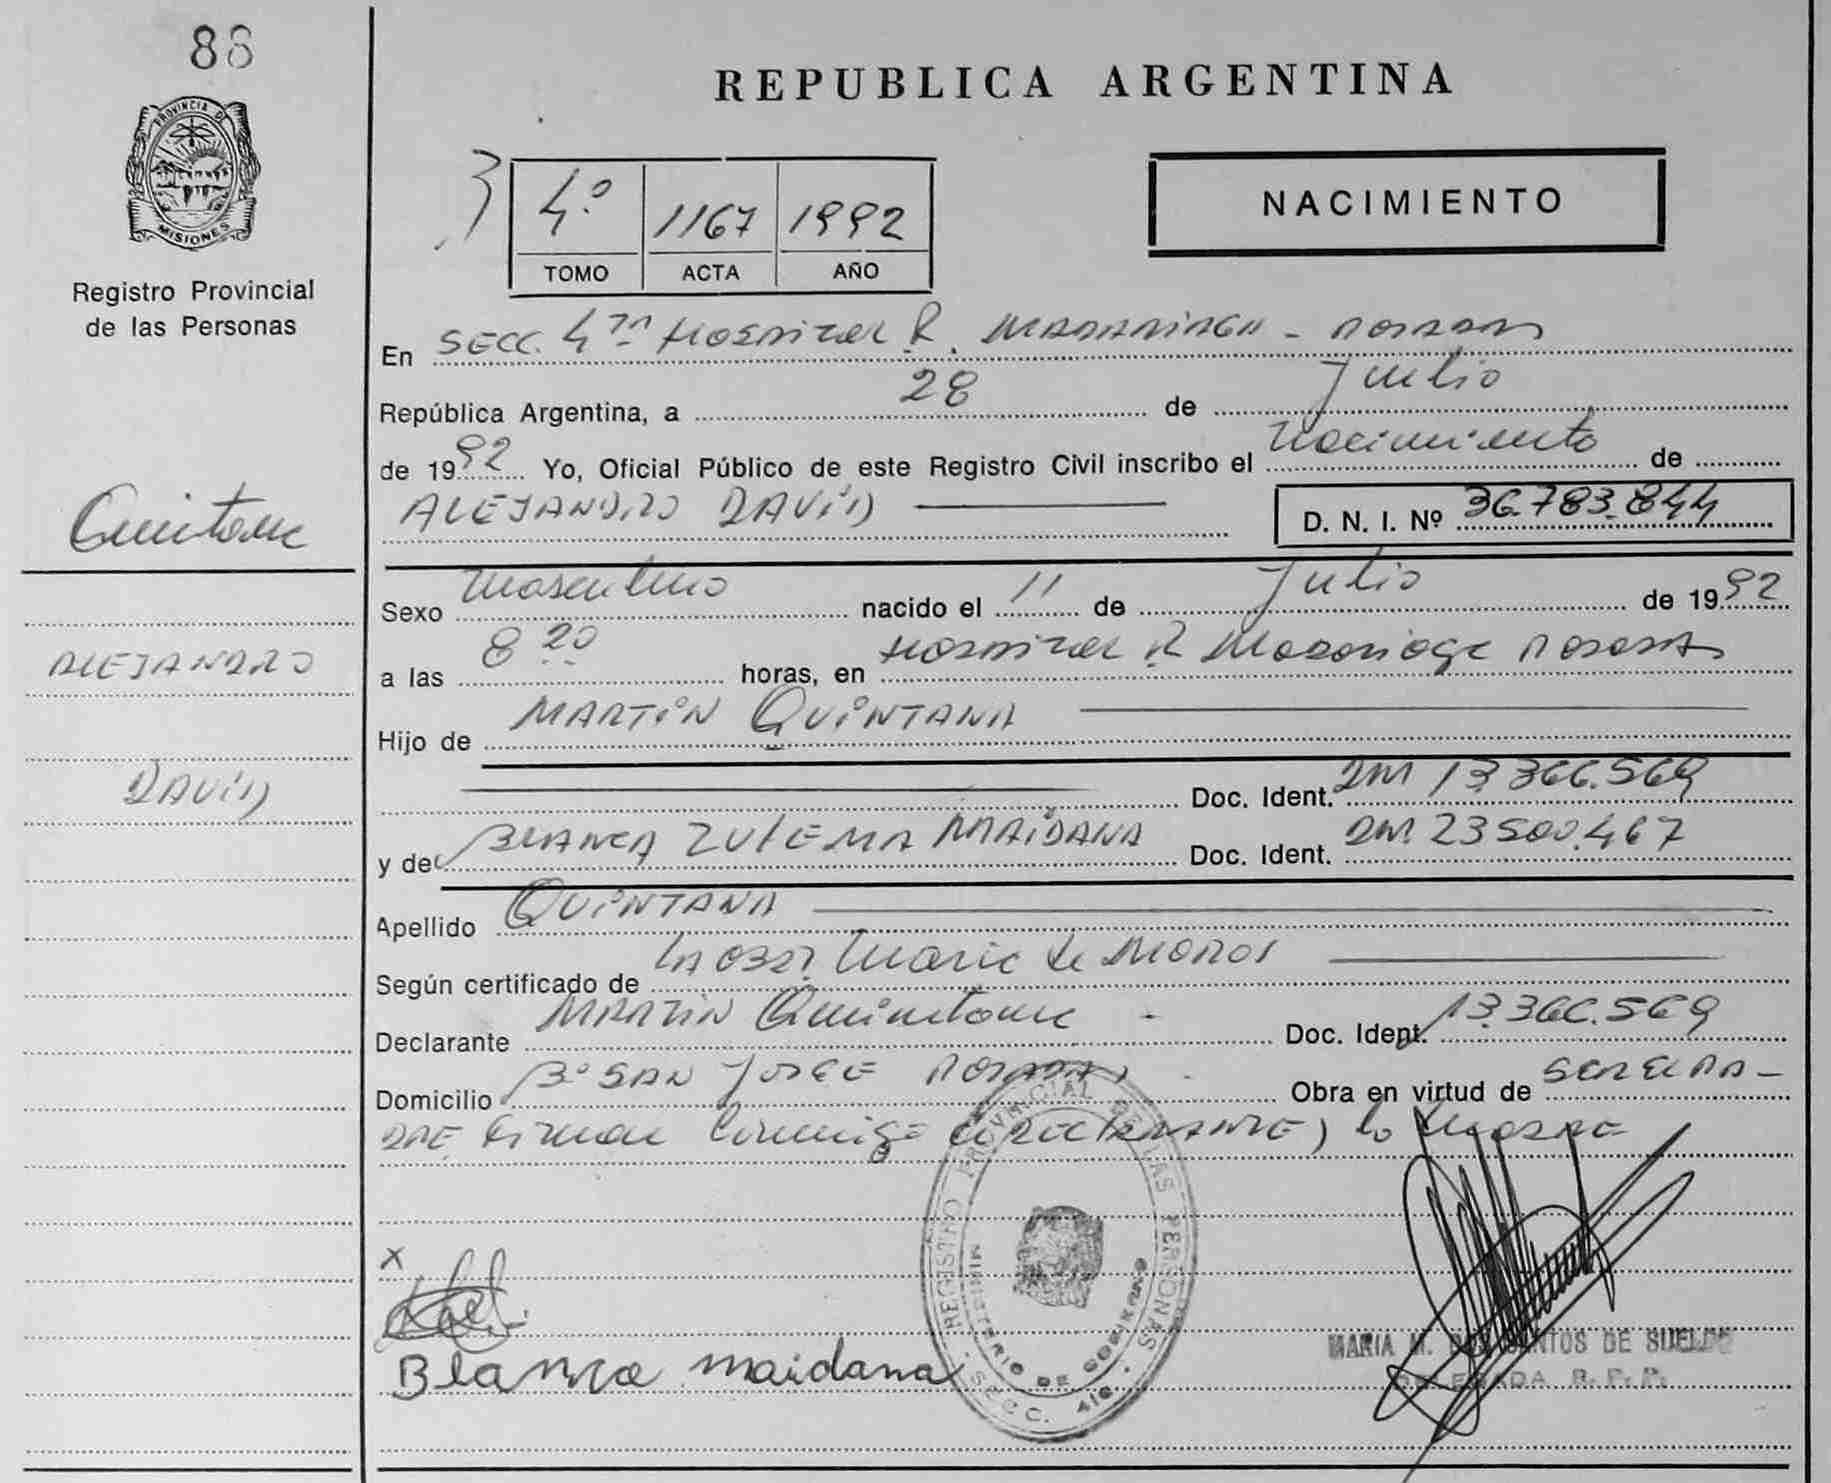 88
REPUBLICA ARGENTINA
PROVINCIA DE
MISIONES
Registro Provincial
de las Personas
4º 1167 1992
TOMO ACTA AÑO
NACIMIENTO
En SECC. 4ta Hospital R. MADARIAGA - POSADAS
República Argentina, a 28 de Julio
de 1992 Yo, Oficial Público de este Registro Civil inscribo el Nacimiento de
ALEJANDRO DAVID
D. N. I. Nº 36.783.844
Quintana
ALEJANDRO
DAVID
Sexo Masculino nacido el 11 de Julio de 1992
a las 8 20 horas, en Hospital R Madariaga POSADAS
Hijo de MARTIN QUINTANA
Doc. Ident. DNI 13.366.569
y de BLANCA ZULEMA MAIDANA Doc. Ident. DNI. 23500.467
Apellido QUINTANA
Según certificado de LA OBST. Maria de
Declarante MARTIN Quintana - Doc. Ident. 13.366.569
Domicilio Bº SAN JORGE POSADAS - Obra en virtud de
Firman conmigo EL DECLARANTE, la Madre
x
Blanca maidana
REGISTRO PROVINCIAL DE LAS PERSONAS
MINISTERIO DE GOBIERNO
SECC. 4ta
MARIA M. DOS SANTOS DE SUELDO
DELEGADA R. P. P.